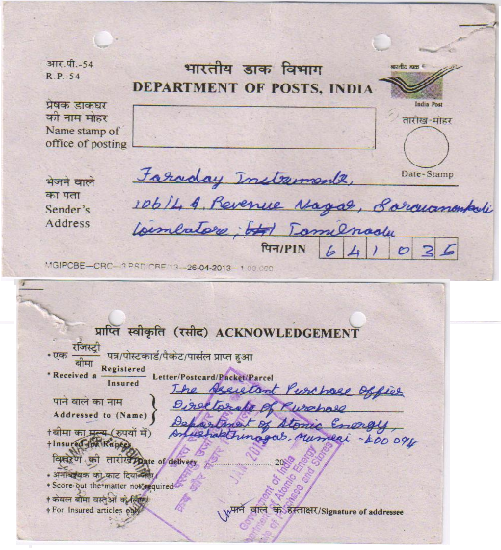 आर.पी.-54
R.P. 54
भारतीय डाक विभाग
DEPARTMENT OF POSTS, INDIA
भारतीय डाक
India Post
प्रेषक डाकघर
की नाम मोहर
Name stamp of
office of posting
तारीख-मोहर
Date-Stamp
भेजने वाले
का पता
Sender's
Address
Faraday Instruments,
Revenue Nagar,
Coimbatore, Tamilnadu
पिन/PIN 641035
26-04-2013
प्राप्ति स्वीकृति (रसीद) ACKNOWLEDGEMENT
* एक रजिस्ट्री
बीमा पत्र/पोस्टकार्ड/पैकेट/पार्सल प्राप्त हुआ
* Received a Registered
Insured Letter/Postcard/Packet/Parcel
पाने वाले का नाम
Addressed to (Name)
The Assistant Purchase Officer
Directorate of Purchase
Department of Atomic Energy,
Anushaktinagar, Mumbai - 400 094
† बीमा का मूल्य (रुपयों में)
† Insured for Rupees
वितरण की तारीख/Date of delivery 20
* अनावश्यक को काट दिया
* Score out the matter not required
† केवल बीमा वस्तुओं के लिए
† For Insured articles only
पाने वाले के हस्ताक्षर/Signature of addressee
Government of India
Department of Atomic Energy
of Purchase and Stores